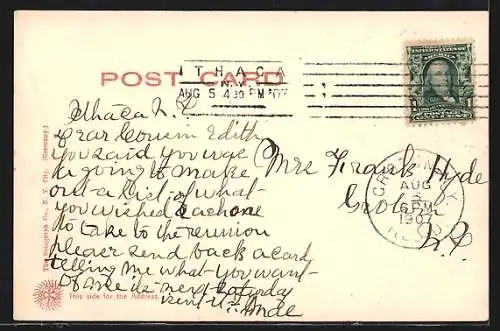 POST CARD
ITHACA
N.Y.
AUG 5 4 30 PM '07
UNITED STATES OF AMERICA
Ithaca N. Y
Dear Cousin Edith
you said you was
a going to make
out a list of what
you wished each one
to take to the reunion
please send back a card
telling me what you want
of me is next Saturday
Mrs Frank Hyde
Groton
N.Y.
GROTON, N.Y.
AUG
6 PM
1907
REC'D
The Rotograph Co., N. Y. City. (Germany.)
This side for the Address.